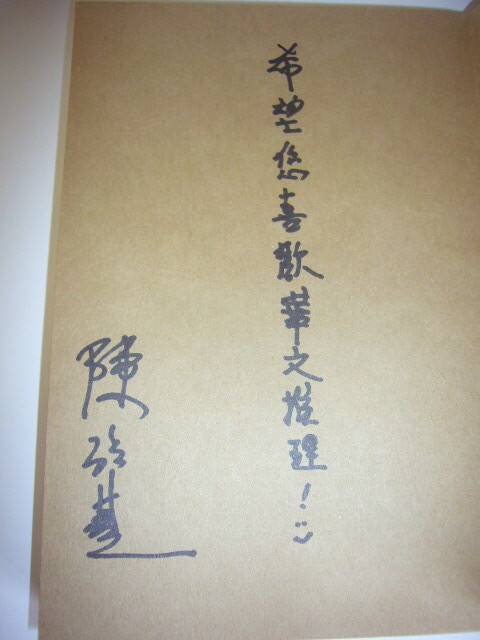 希望您喜歡華文推理！:)
陳浩基